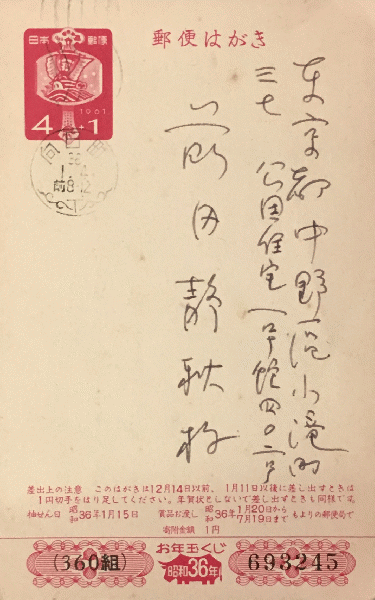 郵便はがき
日本郵便
1961
4+1
36
1.1
前8-12
東京都中野区小滝町
三七 公団住宅一号館四〇二号
前田静秋様
差出上の注意 このはがきは12月14日以前、1月11日以後に差し出すときは
1円切手をはり足してください。年賀状としないで差し出すときも同様です
抽せん日 昭和36年1月15日 賞品お渡し 昭和36年1月20日から7月19日まで もよりの郵便局で
寄附金額 1円
お年玉くじ
(360組) 昭和36年 693245